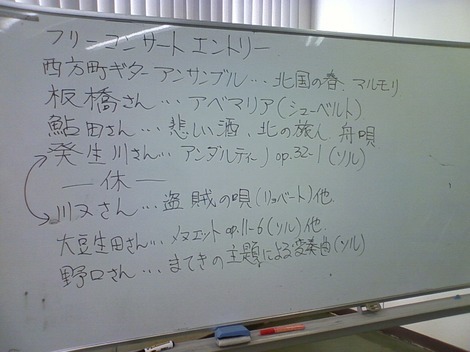 フリーコンサート エントリー
西方町ギターアンサンブル…北国の春、マルモリ
板橋さん…アベマリア(シューベルト)
鮎田さん…悲しい酒、北の旅人 舟唄
癸生川さん…アンダルティーノ op.32-1(ソル)
―休―
川又さん…盗賊の唄(リョベート)他.
大豆生田さん…メヌエット op.11-6(ソル)他.
野口さん…まてきの主題による変奏曲(ソル)